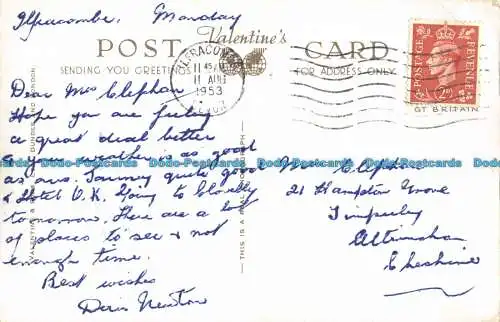 Ilfracombe. Monday
POST Valentine's CARD
SENDING YOU GREETINGS FOR ADDRESS ONLY
ILFRACOMBE
11 45 AM
11 AUG
1953
DEVON
POSTAGE REVENUE
GT BRITAIN
Dear Mrs Clephan
Hope you are feeling
a great deal better
& your weather is as good
as ours. Journey quite good
& Hotel O.K. Going to Clovelly
tomorrow. There are a lot
of places to see & not
enough time.
Best wishes
Doris Newton
Mrs Clephan
21 Hampton Grove
Timperley
Altrincham
Cheshire
VALENTINE & SONS LTD. DUNDEE AND LONDON
THIS IS A REAL PHOTOGRAPH
Dodo-Postcards Dodo-Postcards Dodo-Postcards Dodo-Postcards